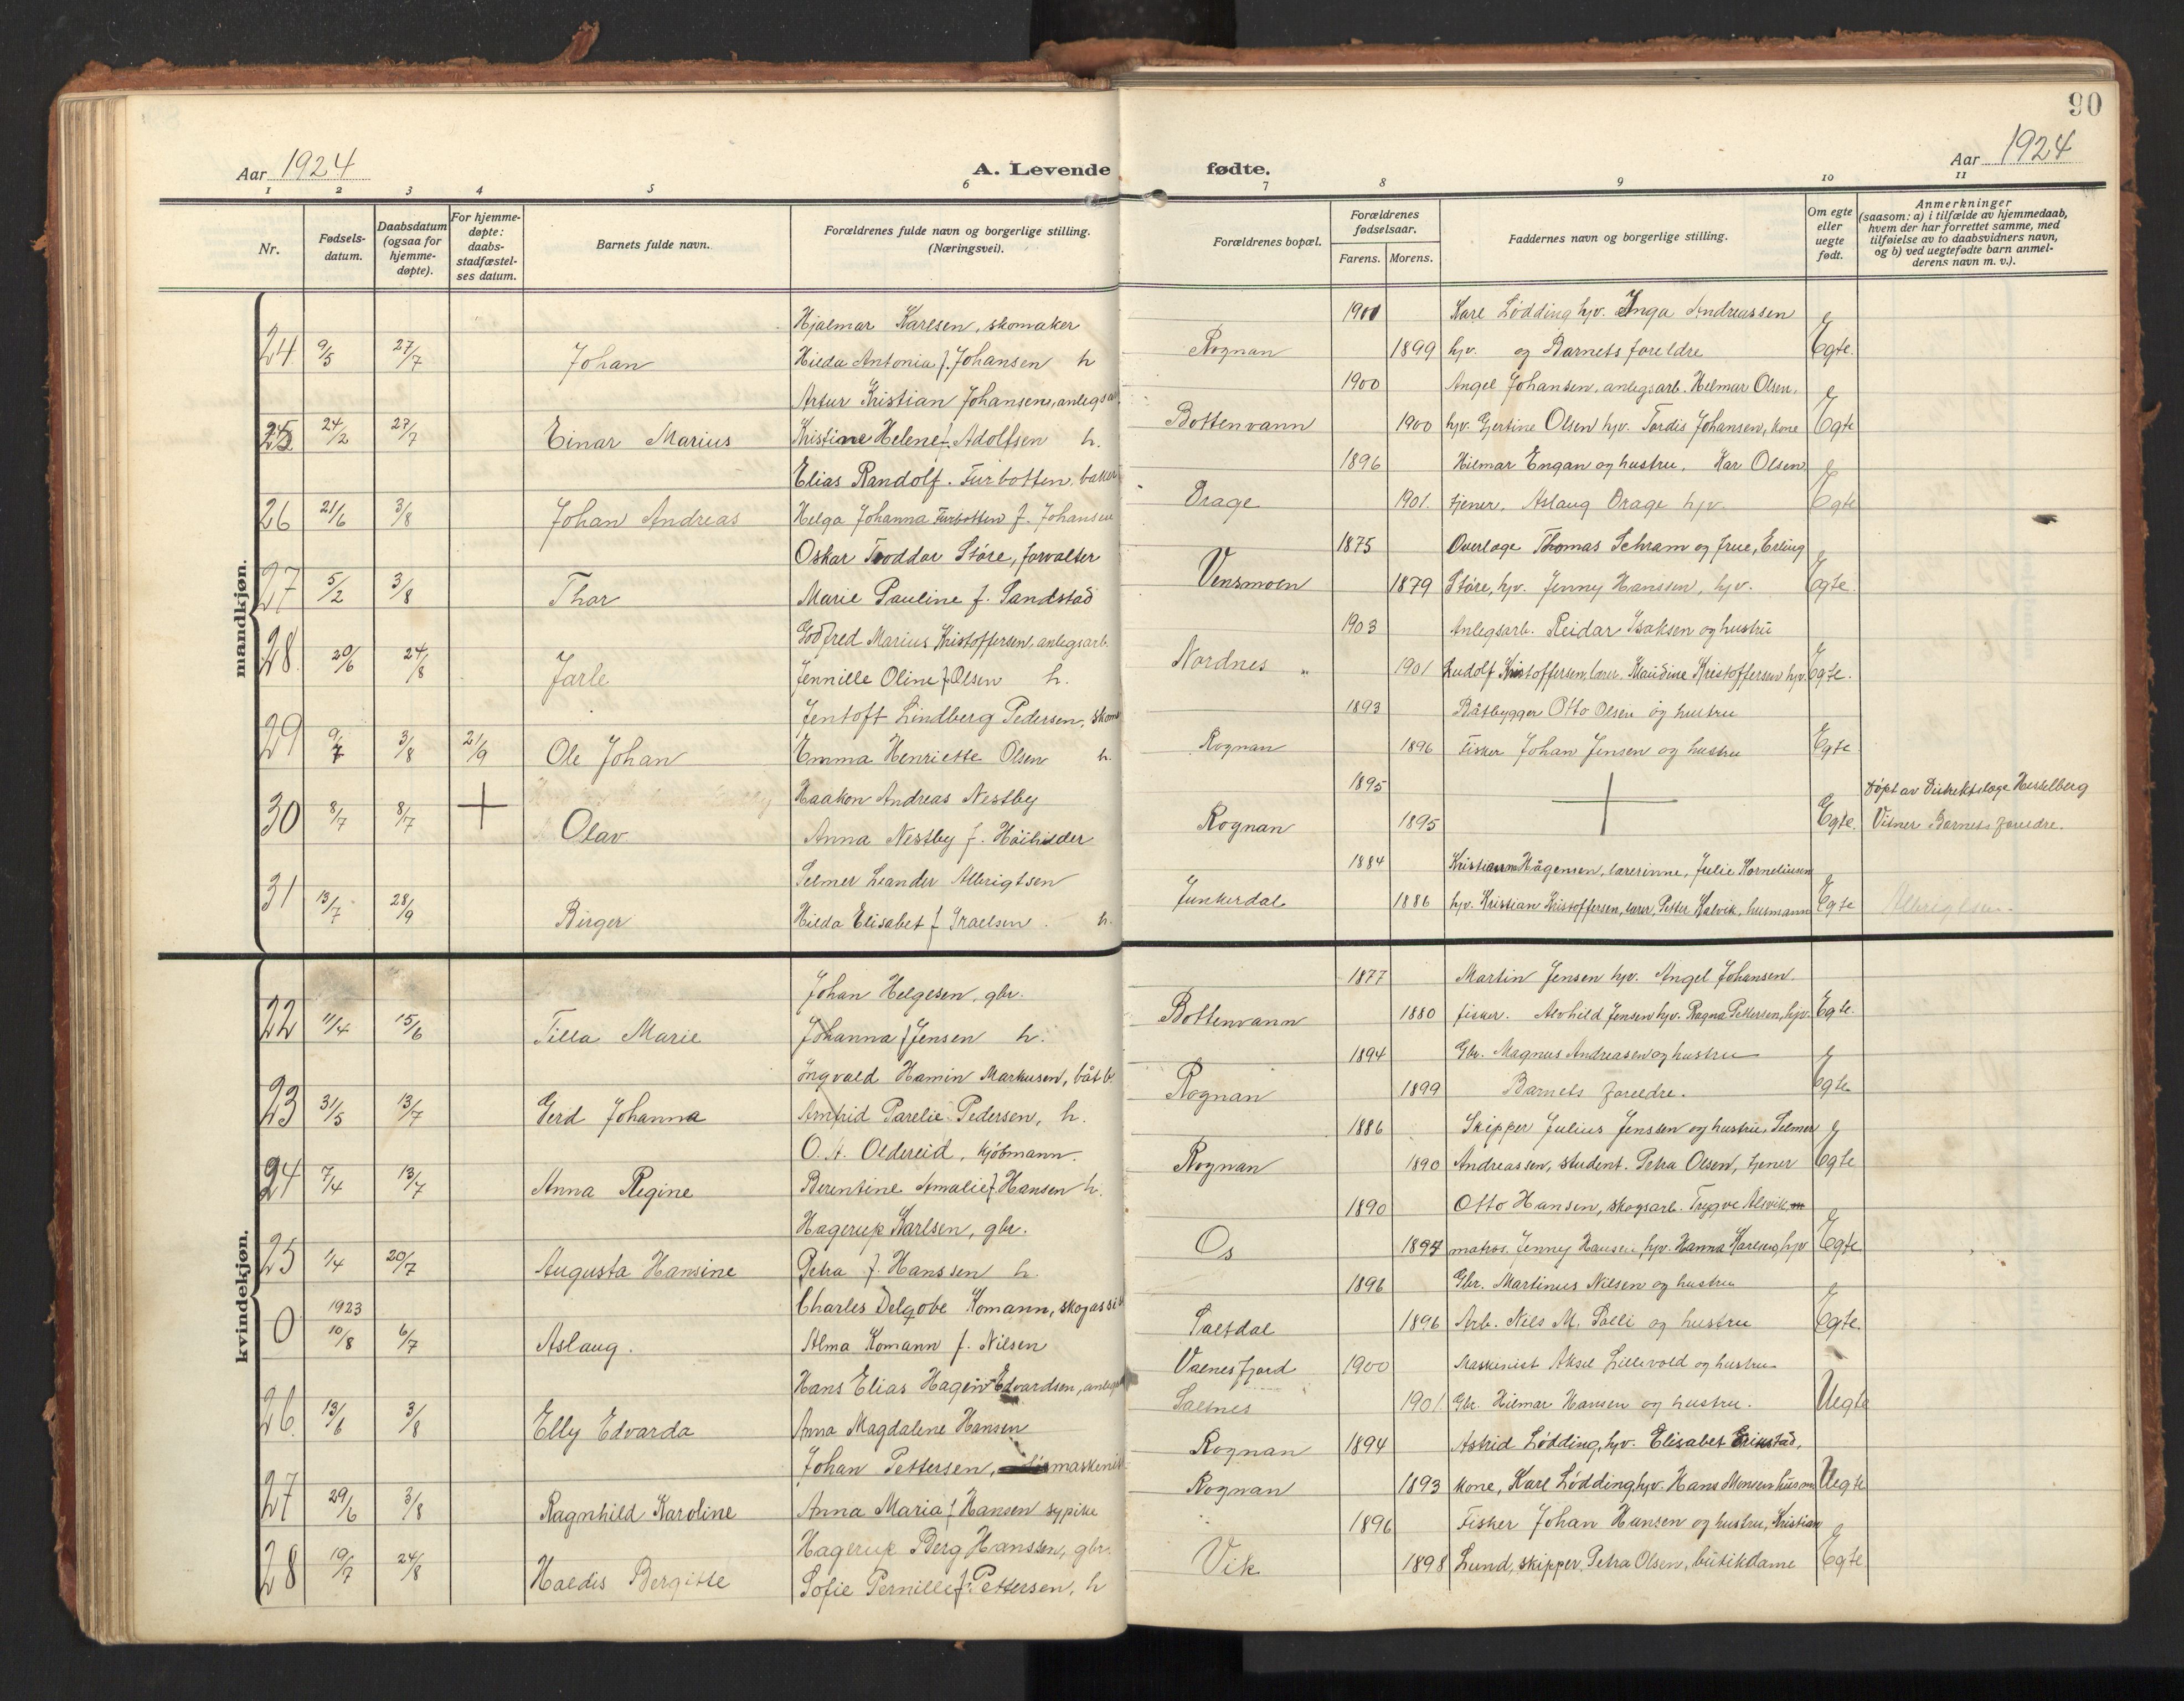 90
Aar 1924
A. Levende fødte.
Aar 1924
1 2 3 4 5 6 7 8 9 10 11
Nr.
Fødsels-datum.
Daabsdatum (ogsaa for hjemme-døpte).
For hjemme-døpte: daabs-stadfæstel-ses datum.
Barnets fulde navn.
Forældrenes fulde navn og borgerlige stilling. (Næringsvei).
Forældrenes bopæl.
Forældrenes fødselsaar.
Farens. Morens.
Faddernes navn og borgerlige stilling.
Om egte eller uegte født.
Anmerkninger (saasom: a) i tilfælde av hjemmedaab, hvem der har forrettet samme, med tilføielse av to daabsvidners navn, og b) ved uegtefødte barn anmel-derens navn m. v.).
mandkjøn.
Hjalmar Karlsen, skomaker 1900 Kare Lødding hjv. Inga Andreassen
24 9/5 27/7 Johan Hilda Antonia f. Johansen h Rognan 1899 hjv. og Barnets foreldre Egte.
Artur Kristian Johansen, anlegsa 1900 Angel Johansen, anlegsarb. Hilmar Olsen,
25 24/2 27/7 Einar Marius Kristine Helene f. Adolfsen h. Bottenvann 1900 hjv. Gjertine Olsen hjv. Tordis Johansen, kone Egte
Elias Randolf Furbotten, baker 1896 Hilmar Engan og hustru. Kar Olsen
26 21/6 3/8 Johan Andreas Helga Johanna Furbotten f. Johansen Drage 1901. tjener. Aslaug Drage hjv. Egte
Oskar Toddar Støre, forvalter 1875 Overlæge Thomas Schram og frue, Erling
27 5/2 3/8 Thor Marie Pauline f. Sandstad Vensmoen 1879 Støre, hjv. Jenny Hanssen, hjv. Egte.
Godfred Marius Kristoffersen, anlegsarb. 1903 Anlegsarb. Reidar Isaksen og hustru
28 20/6 24/8 Jarle Jennille Oline f. Olsen h. Nordnes 1901 Rudolf Kristoffersen, lærer. Maudine Kristoffersen hjv. Egte.
Jentoft Lindberg Pedersen, skom 1893 Båtbygger Otto Olsen og hustru
29 9/7 3/8 21/9 Ole Johan Emma Henriette Olsen h. Rognan 1896 Fisker Johan Jensen og hustru Egte
Haakon Andreas Nestby 1895 Døpt av Distriktslæge Hesselberg
30 8/7 8/7 Olav Anna Nestby f. Høihilder Rognan 1895 Egte. Vitner Barnets foreldre.
Selmer Leander Albrigtsen 1884 Kristianna Hågensen, lærerinne, Julie Korneliusen
31 13/7 28/9 Birger Hilda Elisabet f. Israelsen h. Junkerdal 1886 hjv. Kristian Kristoffersen, lærer, Petter Kalvik, husmann Egte Albrigtsen.
kvindekjøn.
Johan Helgesen, gbr. 1877 Martin Jensen hjv. Angel Johansen
22 11/4 15/6 Tilla Marie Johanna f Jensen h. Bottenvann 1880 fisker. Alvhild Jensen hjv. Ragna Pettersen, hjv. Egte.
Ingvald Hamin Markusen, båtb. 1894 Gbr. Magnus Andreasen og hustru
23 31/5 13/7 Gerd Johanna Arnfrid Parelie Pedersen, h. Rognan 1899 Barnets foreldre. Egte
O. A. Oldereid, kjøbmann. 1886 Skipper Julius Jenssen og hustru, Selmer
24 7/4 13/7 Anna Regine Berentine Amalie f Hansen h. Rognan 1890 Andreassen, student. Petra Olsen, tjener Egte
Hagerup Karlsen, gbr. 1890 Otto Hansen, skogsarb. Trygve Alsvik
25 1/4 20/7 Augusta Hansine Petra f. Hanssen h. Os 1897 matros. Jenny Hansen, hjv. Hanna Karlsen, hjv Egte
1923 Charles Delgobe Komann, skogassi 1896 Gbr. Martinus Nilsen og hustru
0 10/8 6/7 Aslaug. Alma Komann f. Nilsen Saltdal 1896 Arb. Nils M. Palli og hustru Egte.
Hans Elias Hagen Edvardsen, anlegs Valnesfjord 1900 Maskinist Aksel Lillevold og hustru
26. 13/6 3/8 Elly Edvarda Anna Magdalene Hansen Saltnes 1901 Gbr. Hilmar Hansen og hustru. Uegte
Johan Pettersen, maskinist Rognan 1894 Astrid Lødding, hjv. Elisabet Erikstad,
27 29/6 3/8 Ragnhild Karoline Anna Maria f Hansen sypike Rognan 1893 kone, Kare Lødding hjv. Hans Monsen husm Uegte
Hagerup Berg Hanssen, gbr. 1896 Fisker Johan Hansen og hustru, Kristian
28 19/7 24/8 Haldis Bergitte Sofie Pernille f. Pettersen, h Vik 1898 Lund, skipper. Petra Olsen, butikdame Egte